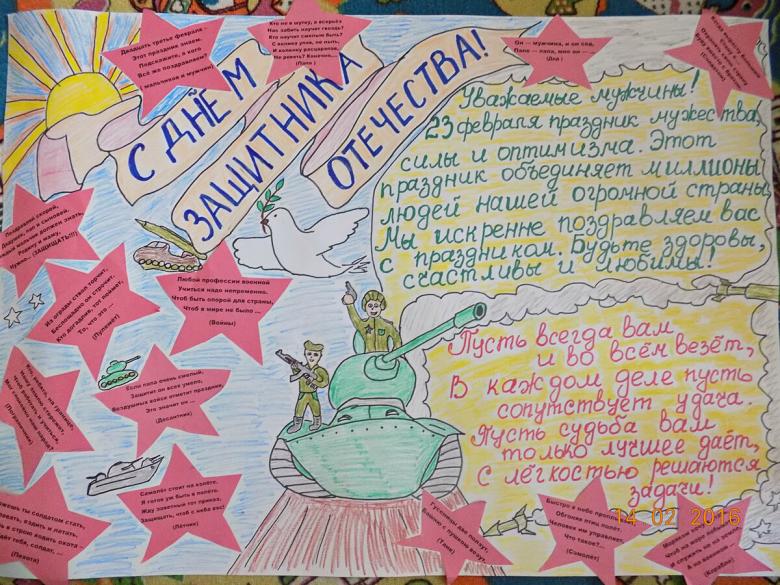 С ДНЁМ
ЗАЩИТНИКА
ОТЕЧЕСТВА!
Двадцать третье февраля -
Этот праздник знаем.
Подскажите, а кого
Всё же поздравляем?
мальчиков и мужчин)
Кто не в шутку, а всерьёз
Нас забить научит гвоздь?
Кто научит смелым быть?
С велика упав, не ныть,
И коленку расцарапав,
Не реветь? Конечно,...
(Папа )
Он — мужчина, и он сед,
Папе — папа, мне он — ...
(Дед )
(Солдат)
Уважаемые мужчины!
23 февраля праздник мужества,
силы и оптимизма. Этот
праздник объединяет миллионы
людей нашей огромной страны
Мы искренне поздравляем вас
с праздником. Будьте здоровы,
счастливы и любимы!
Поздравляй скорей,
Дедушек, пап и сыновей.
мальчик должен знать,
Родину и маму,
Нужно... (ЗАЩИЩАТЬ!!!)
Из ограды ствол торчит,
Беспощадно он строчит.
Кто догадлив, тот поймет,
То, что это ...
(Пулемет)
Любой профессии военной
Учиться надо непременно.
Чтоб быть опорой для страны,
Чтоб в мире не было ...
(Войны)
Если папа очень смелый,
Защитит он всех умело,
Воздушных войск отметит праздник,
Это значит он ...
(Десантник)
на границе,
Чтоб работать и учиться,
(Пограничник)
Самолёт стоит на взлёте.
Я готов уж быть в полёте.
Жду заветный тот приказ,
Защищать, чтоб с неба вас!
(Лётчик)
солдатом стать,
ездить и летать,
в строю ходить охота
тебя, солдат, ...
(Пехота)
Пусть всегда вам
и во всём везёт,
В каждом деле пусть
сопутствует удача.
Пусть судьба вам
только лучшее даёт,
С лёгкостью решаются
задачи!
Гусеницы две ползут,
Башню с пушкою везут.
(Танк)
Быстро в небе
Обгоняя птиц полёт.
Человек им управляет,
Что такое?...
(Самолёт)
(Корабле)
14 02 2016